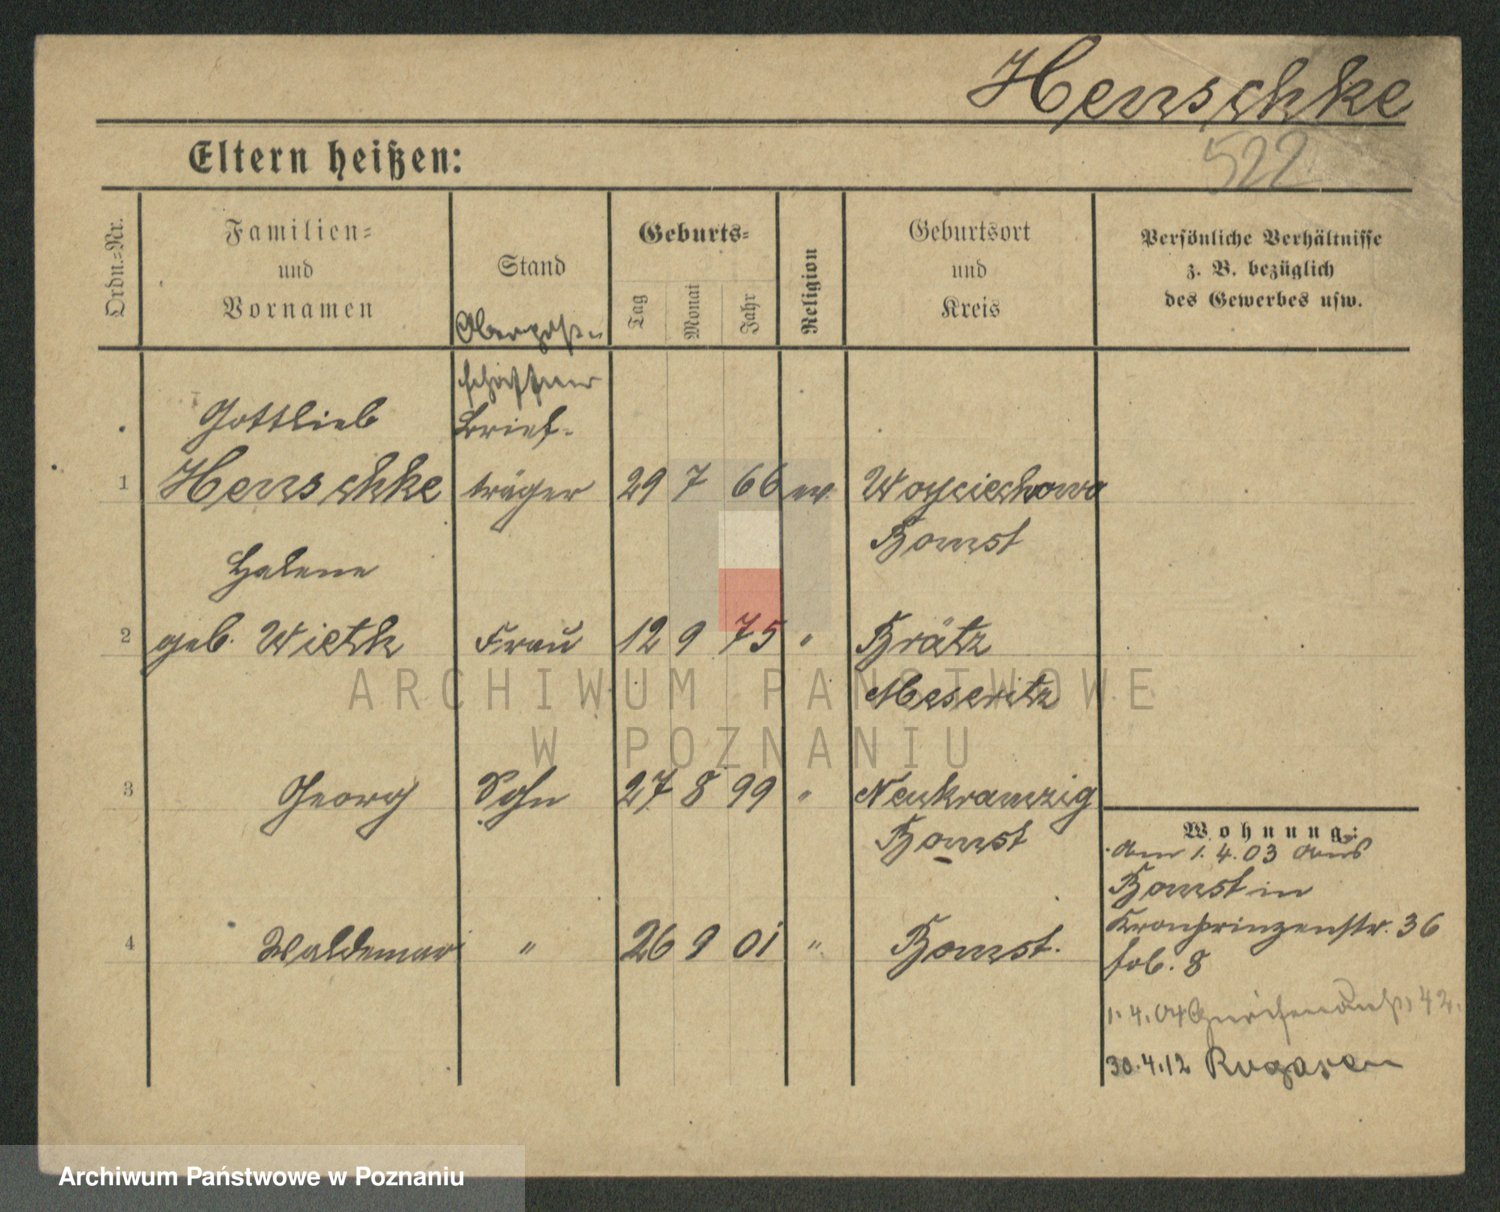 Henschke
522
Eltern heißen:
Ordn.-Nr.
Familien-
und
Vornamen
Stand
Geburts-
Tag
Monat
Jahr
Religion
Geburtsort
und
Kreis
Persönliche Verhältnisse
z. B. bezüglich
des Gewerbes usw.
Oberpost-
schaffner
Gottlieb Brief-
1 Henschke träger 29 7 66 ev Woyciechowo
Bomst
Helene
2 geb. Wieth Frau 12 9 75 " Brätz
Meseritz
3 Georg Sohn 27 8 99 " Neukramzig
Bomst
4 Waldemar " 26 9 01 " Bomst.
Wohnung:
Am 1.4.03 aus
Bomst in
Kronprinzenstr. 36
bb. 8
1.4.04 42.
30.4.12 Rogasen
ARCHIWUM PAŃSTWOWE
W POZNANIU
Archiwum Państwowe w Poznaniu